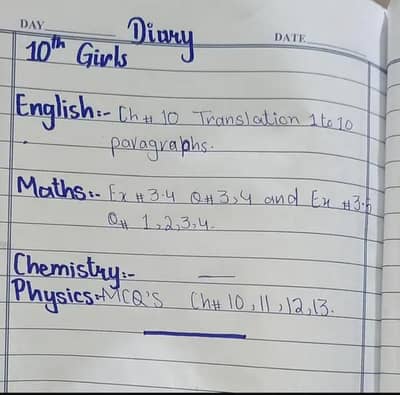 DAY
Diary
DATE
10th Girls
English:- Ch # 10 Translation 1 to 10
paragraphs.
Maths:- Ex # 3.4 Q#3,4 and Ex #3.5
Q# 1,2,3,4.
Chemistry:- —
Physics:-MCQ'S Ch# 10,11,12,13.